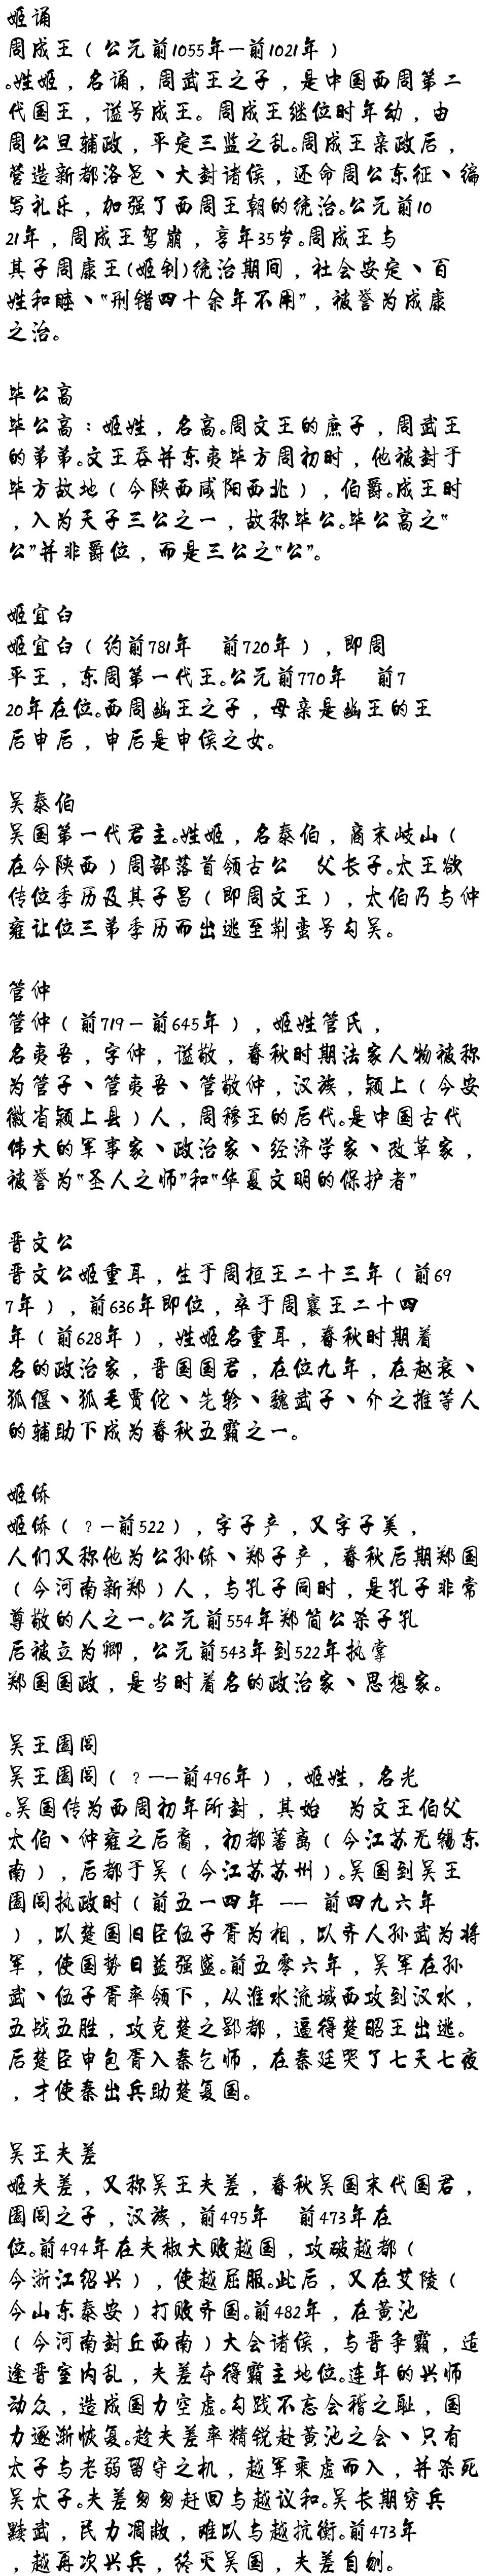 姬诵
周成王（公元前1055年—前1021年）
。姓姬，名诵，周武王之子，是中国西周第二
代国王，谥号成王。周成王继位时年幼，由
周公旦辅政，平定三监之乱。周成王亲政后，
营造新都洛邑、大封诸侯，还命周公东征、编
写礼乐，加强了西周王朝的统治。公元前10
21年，周成王驾崩，享年35岁。周成王与
其子周康王(姬钊)统治期间，社会安定、百
姓和睦、“刑错四十余年不用”，被誉为成康
之治。
毕公高
毕公高：姬姓，名高。周文王的庶子，周武王
的弟弟。文王吞并东夷毕方周初时，他被封于
毕方故地（今陕西咸阳西北），伯爵。成王时
，入为天子三公之一，故称毕公。毕公高之“
公”并非爵位，而是三公之“公”。
姬宜臼
姬宜臼（约前781年　前720年），即周
平王，东周第一代王。公元前770年　前7
20年在位。西周幽王之子，母亲是幽王的王
后申后，申后是申侯之女。
吴泰伯
吴国第一代君主。姓姬，名泰伯，商末岐山（
在今陕西）周部落首领古公　父长子。太王欲
传位季历及其子昌（即周文王），太伯乃与仲
雍让位三弟季历而出逃至荆蛮号勾吴。
管仲
管仲（前719－前645年），姬姓管氏，
名夷吾，字仲，谥敬，春秋时期法家人物被称
为管子、管夷吾、管敬仲，汉族，颍上（今安
徽省颍上县）人，周穆王的后代。是中国古代
伟大的军事家、政治家、经济学家、改革家，
被誉为“圣人之师”和“华夏文明的保护者”
晋文公
晋文公姬重耳，生于周桓王二十三年（前69
7年），前636年即位，卒于周襄王二十四
年（前628年），姓姬名重耳，春秋时期着
名的政治家，晋国国君，在位九年，在赵衰、
狐偃、狐毛贾佗、先轸、魏武子、介之推等人
的辅助下成为春秋五霸之一。
姬侨
姬侨（？—前522），字子产，又字子美，
人们又称他为公孙侨、郑子产，春秋后期郑国
（今河南新郑）人，与孔子同时，是孔子非常
尊敬的人之一。公元前554年郑简公杀子孔
后被立为卿，公元前543年到522年执掌
郑国国政，是当时着名的政治家、思想家。
吴王阖闾
吴王阖闾（？——前496年），姬姓，名光
。吴国传为西周初年所封，其始　为文王伯父
太伯、仲雍之后裔，初都蕃离（今江苏无锡东
南），后都于吴（今江苏苏州）。吴国到吴王
阖闾执政时（前五一四年 —— 前四九六年
），以楚国旧臣伍子胥为相，以齐人孙武为将
军，使国势日益强盛。前五零六年，吴军在孙
武、伍子胥率领下，从淮水流域西攻到汉水，
五战五胜，攻克楚之郢都，逼得楚昭王出逃。
后楚臣申包胥入秦乞师，在秦廷哭了七天七夜
，才使秦出兵助楚复国。
吴王夫差
姬夫差，又称吴王夫差，春秋吴国末代国君，
阖闾之子，汉族，前495年　前473年在
位。前494年在夫椒大败越国，攻破越都（
今浙江绍兴），使越屈服。此后，又在艾陵（
今山东泰安）打败齐国。前482年，在黄池
（今河南封丘西南）大会诸侯，与晋争霸，适
逢晋室内乱，夫差夺得霸主地位。连年的兴师
动众，造成国力空虚。勾践不忘会稽之耻，国
力逐渐恢复。趁夫差率精锐赴黄池之会、只有
太子与老弱留守之机，越军乘虚而入，并杀死
吴太子。夫差匆匆赶回与越议和。吴长期穷兵
黩武，民力凋敝，难以与越抗衡。前473年
，越再次兴兵，终灭吴国，夫差自刎。